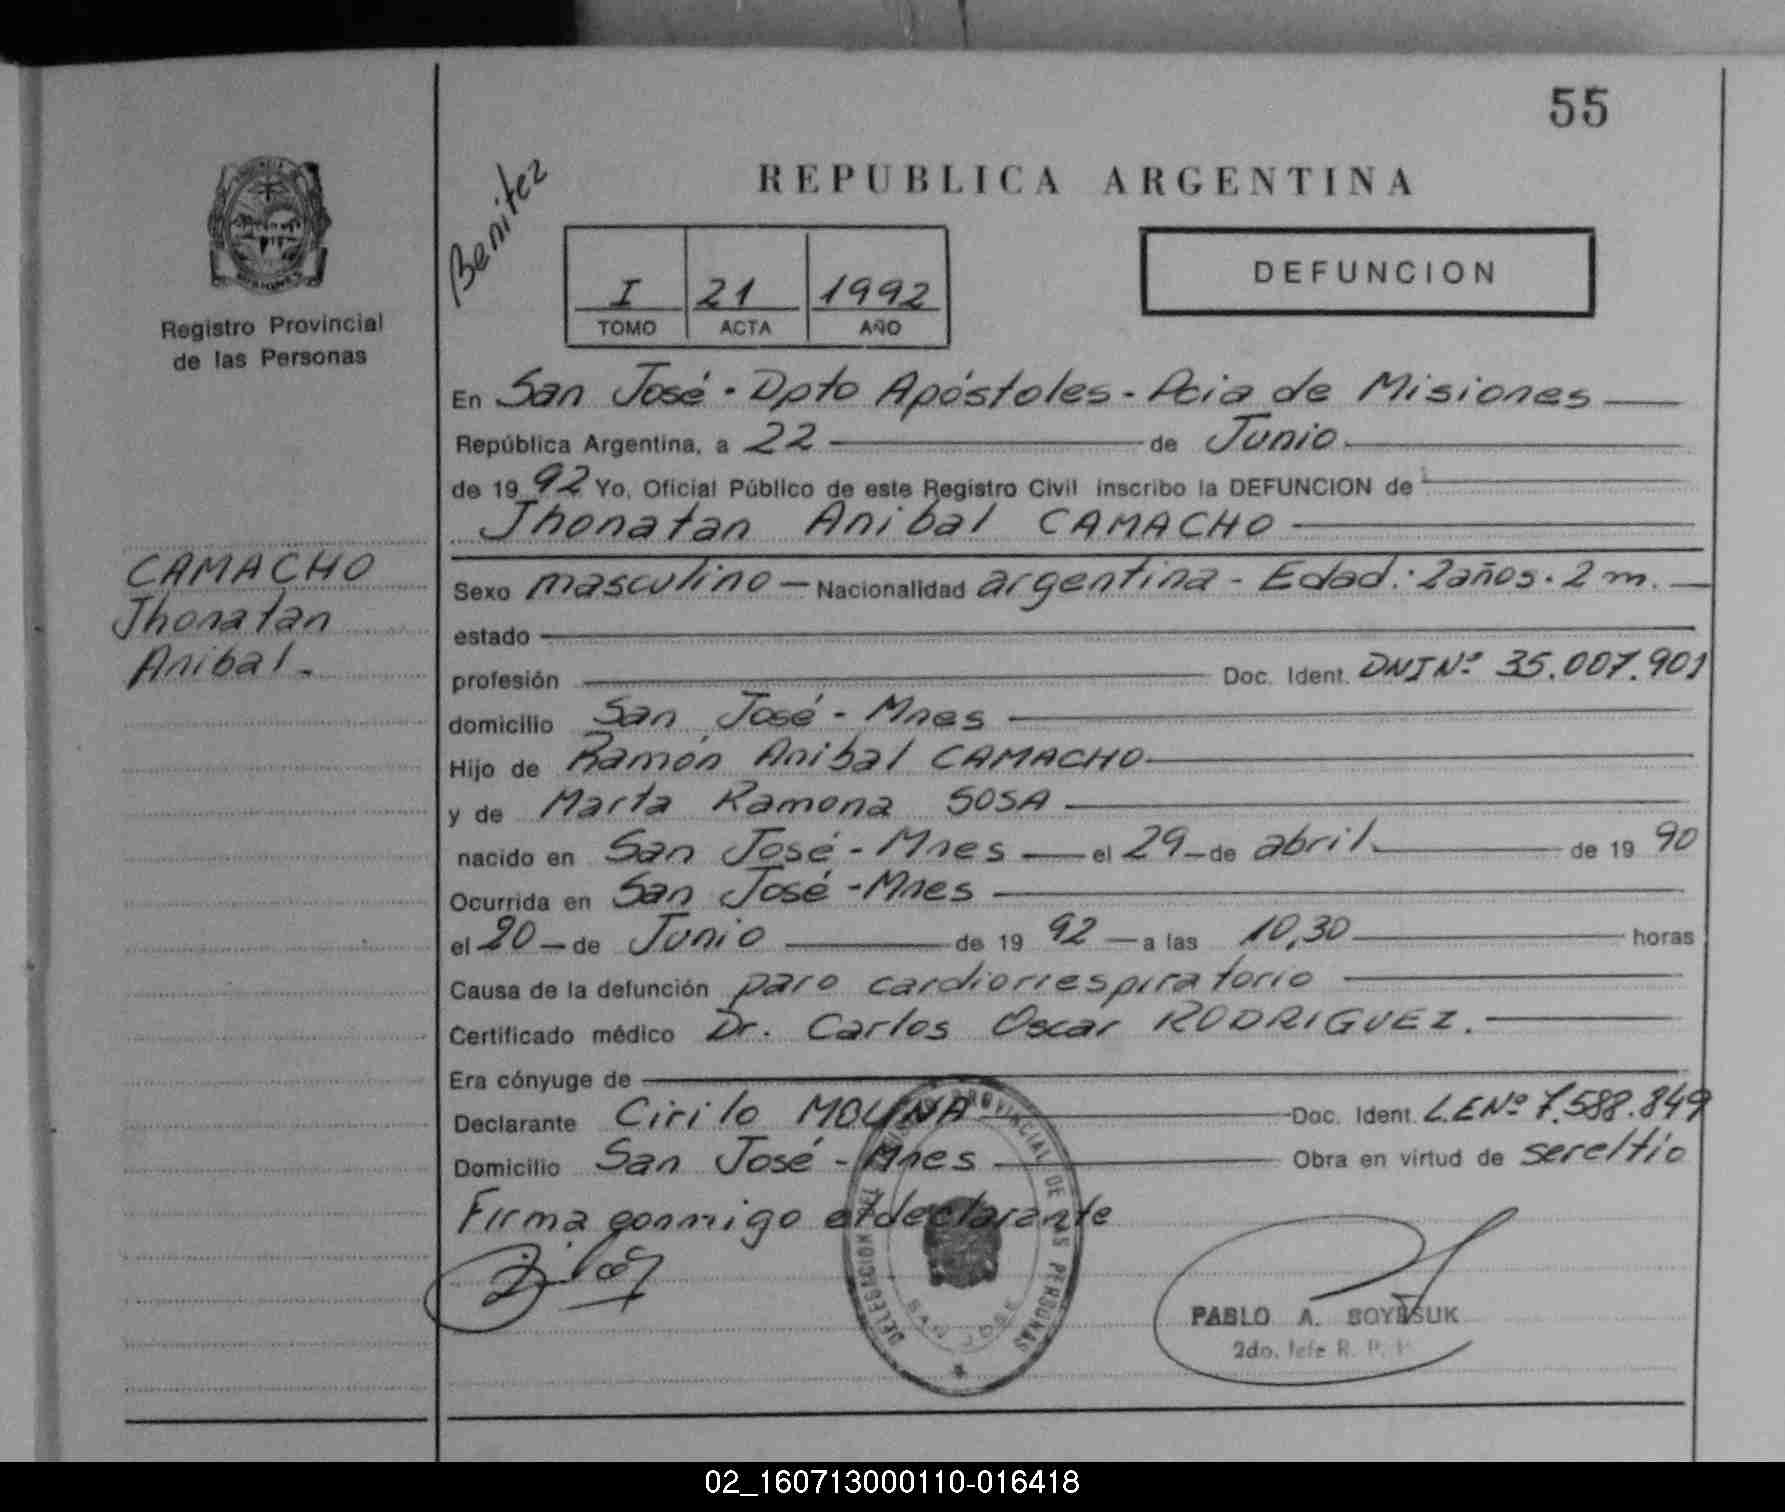 55
Benitez
REPUBLICA ARGENTINA
I 21 1992
TOMO ACTA AÑO
DEFUNCION
Registro Provincial
de las Personas
CAMACHO
Jhonatan
Anibal.
En San José - Dpto Apóstoles - Pcia de Misiones
República Argentina, a 22 de Junio
de 19 92 Yo, Oficial Público de este Registro Civil inscribo la DEFUNCION de
Jhonatan Anibal CAMACHO
Sexo masculino - Nacionalidad argentina - Edad: 2 años. 2 m.
estado
profesión Doc. Ident. DNI Nº 35.007.901
domicilio San José - Mnes
Hijo de Ramón Anibal CAMACHO
y de Marta Ramona SOSA
nacido en San José - Mnes el 29 - de abril de 19 90
Ocurrida en San José - Mnes
el 20 - de Junio de 19 92 - a las 10,30 horas
Causa de la defunción paro cardiorrespiratorio
Certificado médico Dr. Carlos Oscar RODRIGUEZ.
Era cónyuge de
Declarante Cirilo MOLINA Doc. Ident. L.E Nº 7.588.849
Domicilio San José - Mnes Obra en virtud de ser el tío
Firma conmigo el declarante
PROVINCIAL DE LAS PERSONAS
DELEGACION DEL
SAN JOSE
PABLO A. BOYESUK
2do. Jefe R. P.
02_160713000110-016418